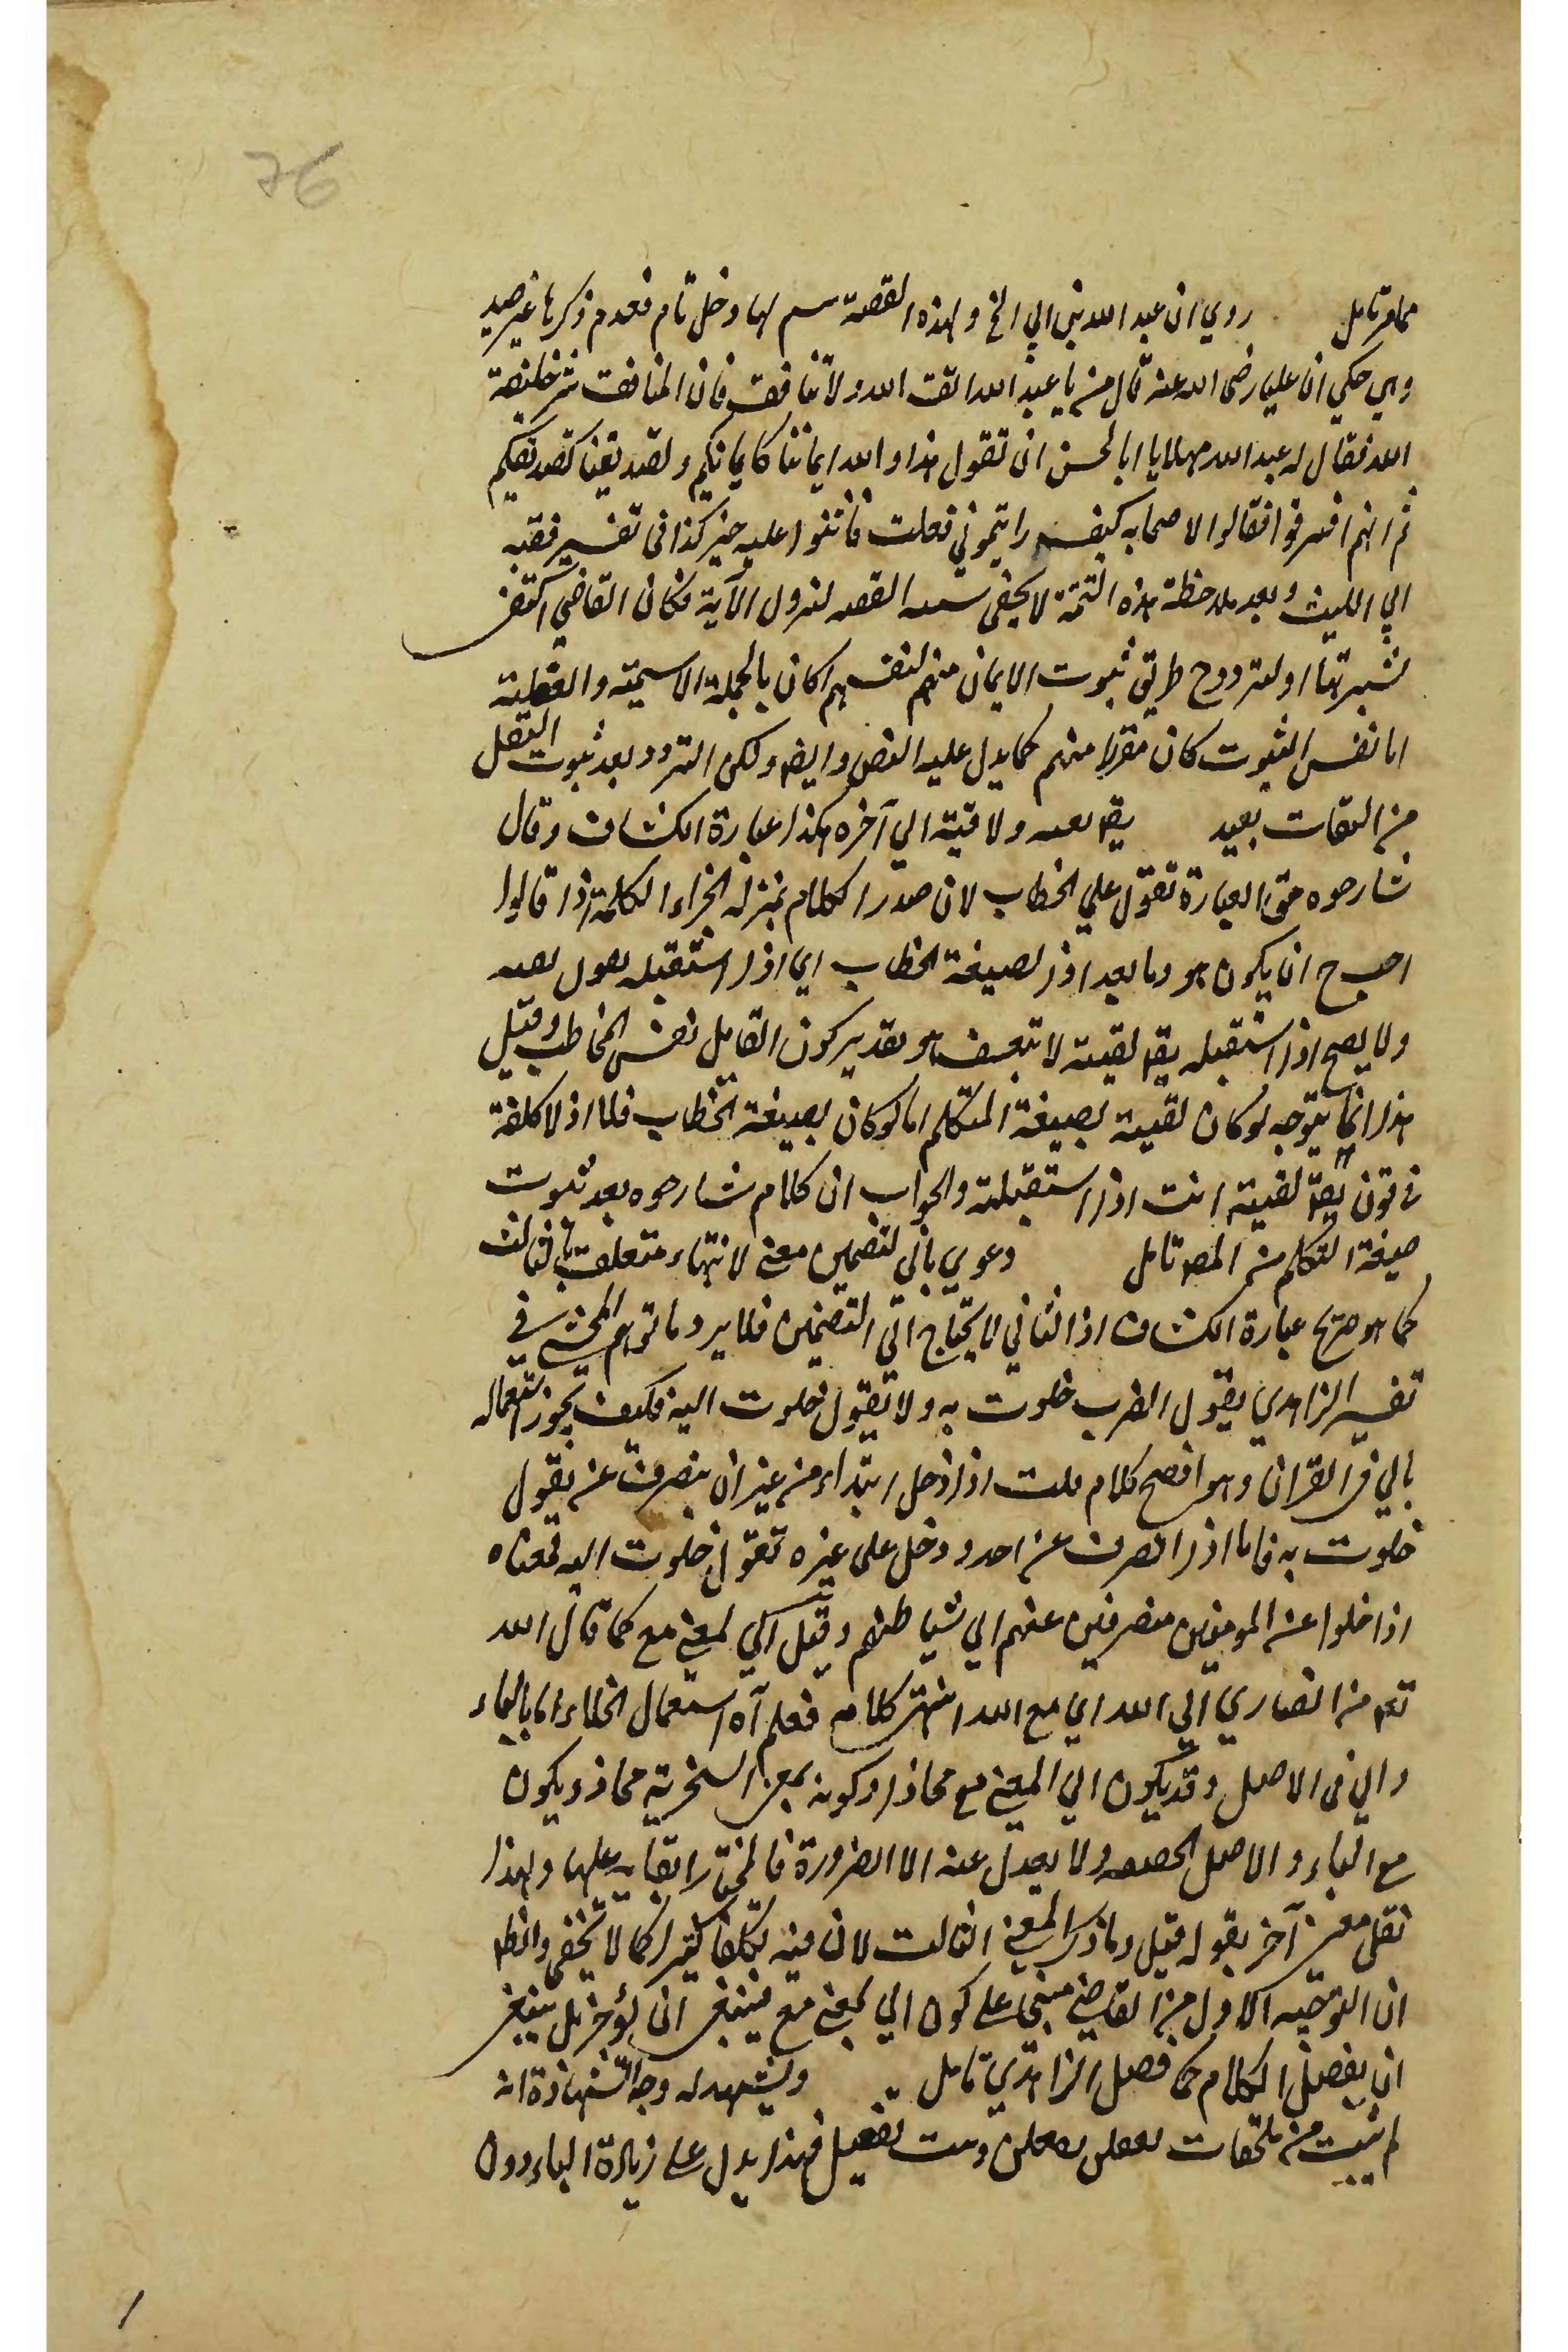 76
روي ان عبد الله بن ابي الخ ولهذه القصة لها دخل تام فعدم ذكرها غير
وهي حكي ان عليا رضى الله عنه قال يا عبد الله اتق الله ولا تنافق فان المنافقت شر خليفة
الله فقال له عبد الله مهلا يا ابا لحسن ان تقول هذا والله ايماننا كايمانكم وتصديقنا كتصديقكم
ثم انهم افترقوا فقالوا لاصحابه كيف رايتموني فعلت فاثنوا عليه خير كذا فى تفسير فقيه
ابي الليث وبعد ملاحظة هذه التتمة لا يخفى القصه لنزول الآية فكان القاضي اكتفى
لشهرتها او لتردد ح طريق ثبوت الايمان منهم لنفسهم اكان بالجملة الاسمية والفعلية
اما نفس الثبوت كان مقررا منهم كما يدل عليه النص وايضا ولكن التردد بعد ثبوت النقل
من الثقات بعيد يقا لقيته ولاقيته الي آخره هكذا عبارة الكشاف وقال
شارحوه حق العبارة تقول علي الخطاب لان صدر الكلام بمنزلة الجزاء لكلمة اذا قالوا
ح ان يكون هو وما بعد اذا لصيغة الخطاب اي اذا استقبله
ولا يصح اذا استقبله يقا لقيته لا بتعسف هو تقدير كون القايل نفس المخاطب وقيل
هذا انما يتوجه لو كان لقيته بصيغة المتكلم اما لو كان بصيغة الخطاب فلا اذ لا كلفة
فى قولنا يقا لقيته انت اذا استقبلته والجواب ان كلام شارحوه بعد ثبوت
صيغة التكلم من المصر تامل وعدي بالي لتضمين معنى الانتهاء متعلق بالثالث
كما هو صريح عبارة الكشاف اذ الثاني لا يحتاج الي التضمين فلا يرد ما توهم المحشي في
تفسير الزاهدي يقول العرب خلوت به ولا تقول خلوت اليه فكيف يجوز استعماله
بالي فى القران وهو افصح كلام قلت اذا دخل ابتداء من غير ان ينصرف عن يقول
خلوت به فاما اذا انصرف عن احد ودخل على غيره تقول خلوت اليه فمعناه
اذا خلوا عن المومنين منصرفين عنهم الي شياطينهم وقيل الي بمعنى مع كما قال الله
تعا من انصاري الي الله اي مع الله انتهى كلامه فعلم ان استعمال الخلاء اما بالباء
والي فى الاصل وقد يكون الي بمعنى مع مجازا وكونه بمعنى السخرية مجاز ويكون
مع الباء والاصل الحقيقه ولا يعدل عنه الا الضرورة فالمختار ابقائه عليها ولهذا
نقل معنى آخر بقوله قيل وما ذكر المعنى الثالث لان فيه تكلفا كثيرا كما لا يخفى والظا
ان التوجيه الاول من القاضي مبني على كون الي بمعنى مع فينبغى ان يؤخر بل ينبغى
ان يفصل الكلام كما فصل الزاهدي تامل ويشهد له وجه الشهادة انه
لم يثبت من ملحقات تفعيل فهذا يدل على زيادة الياء دون